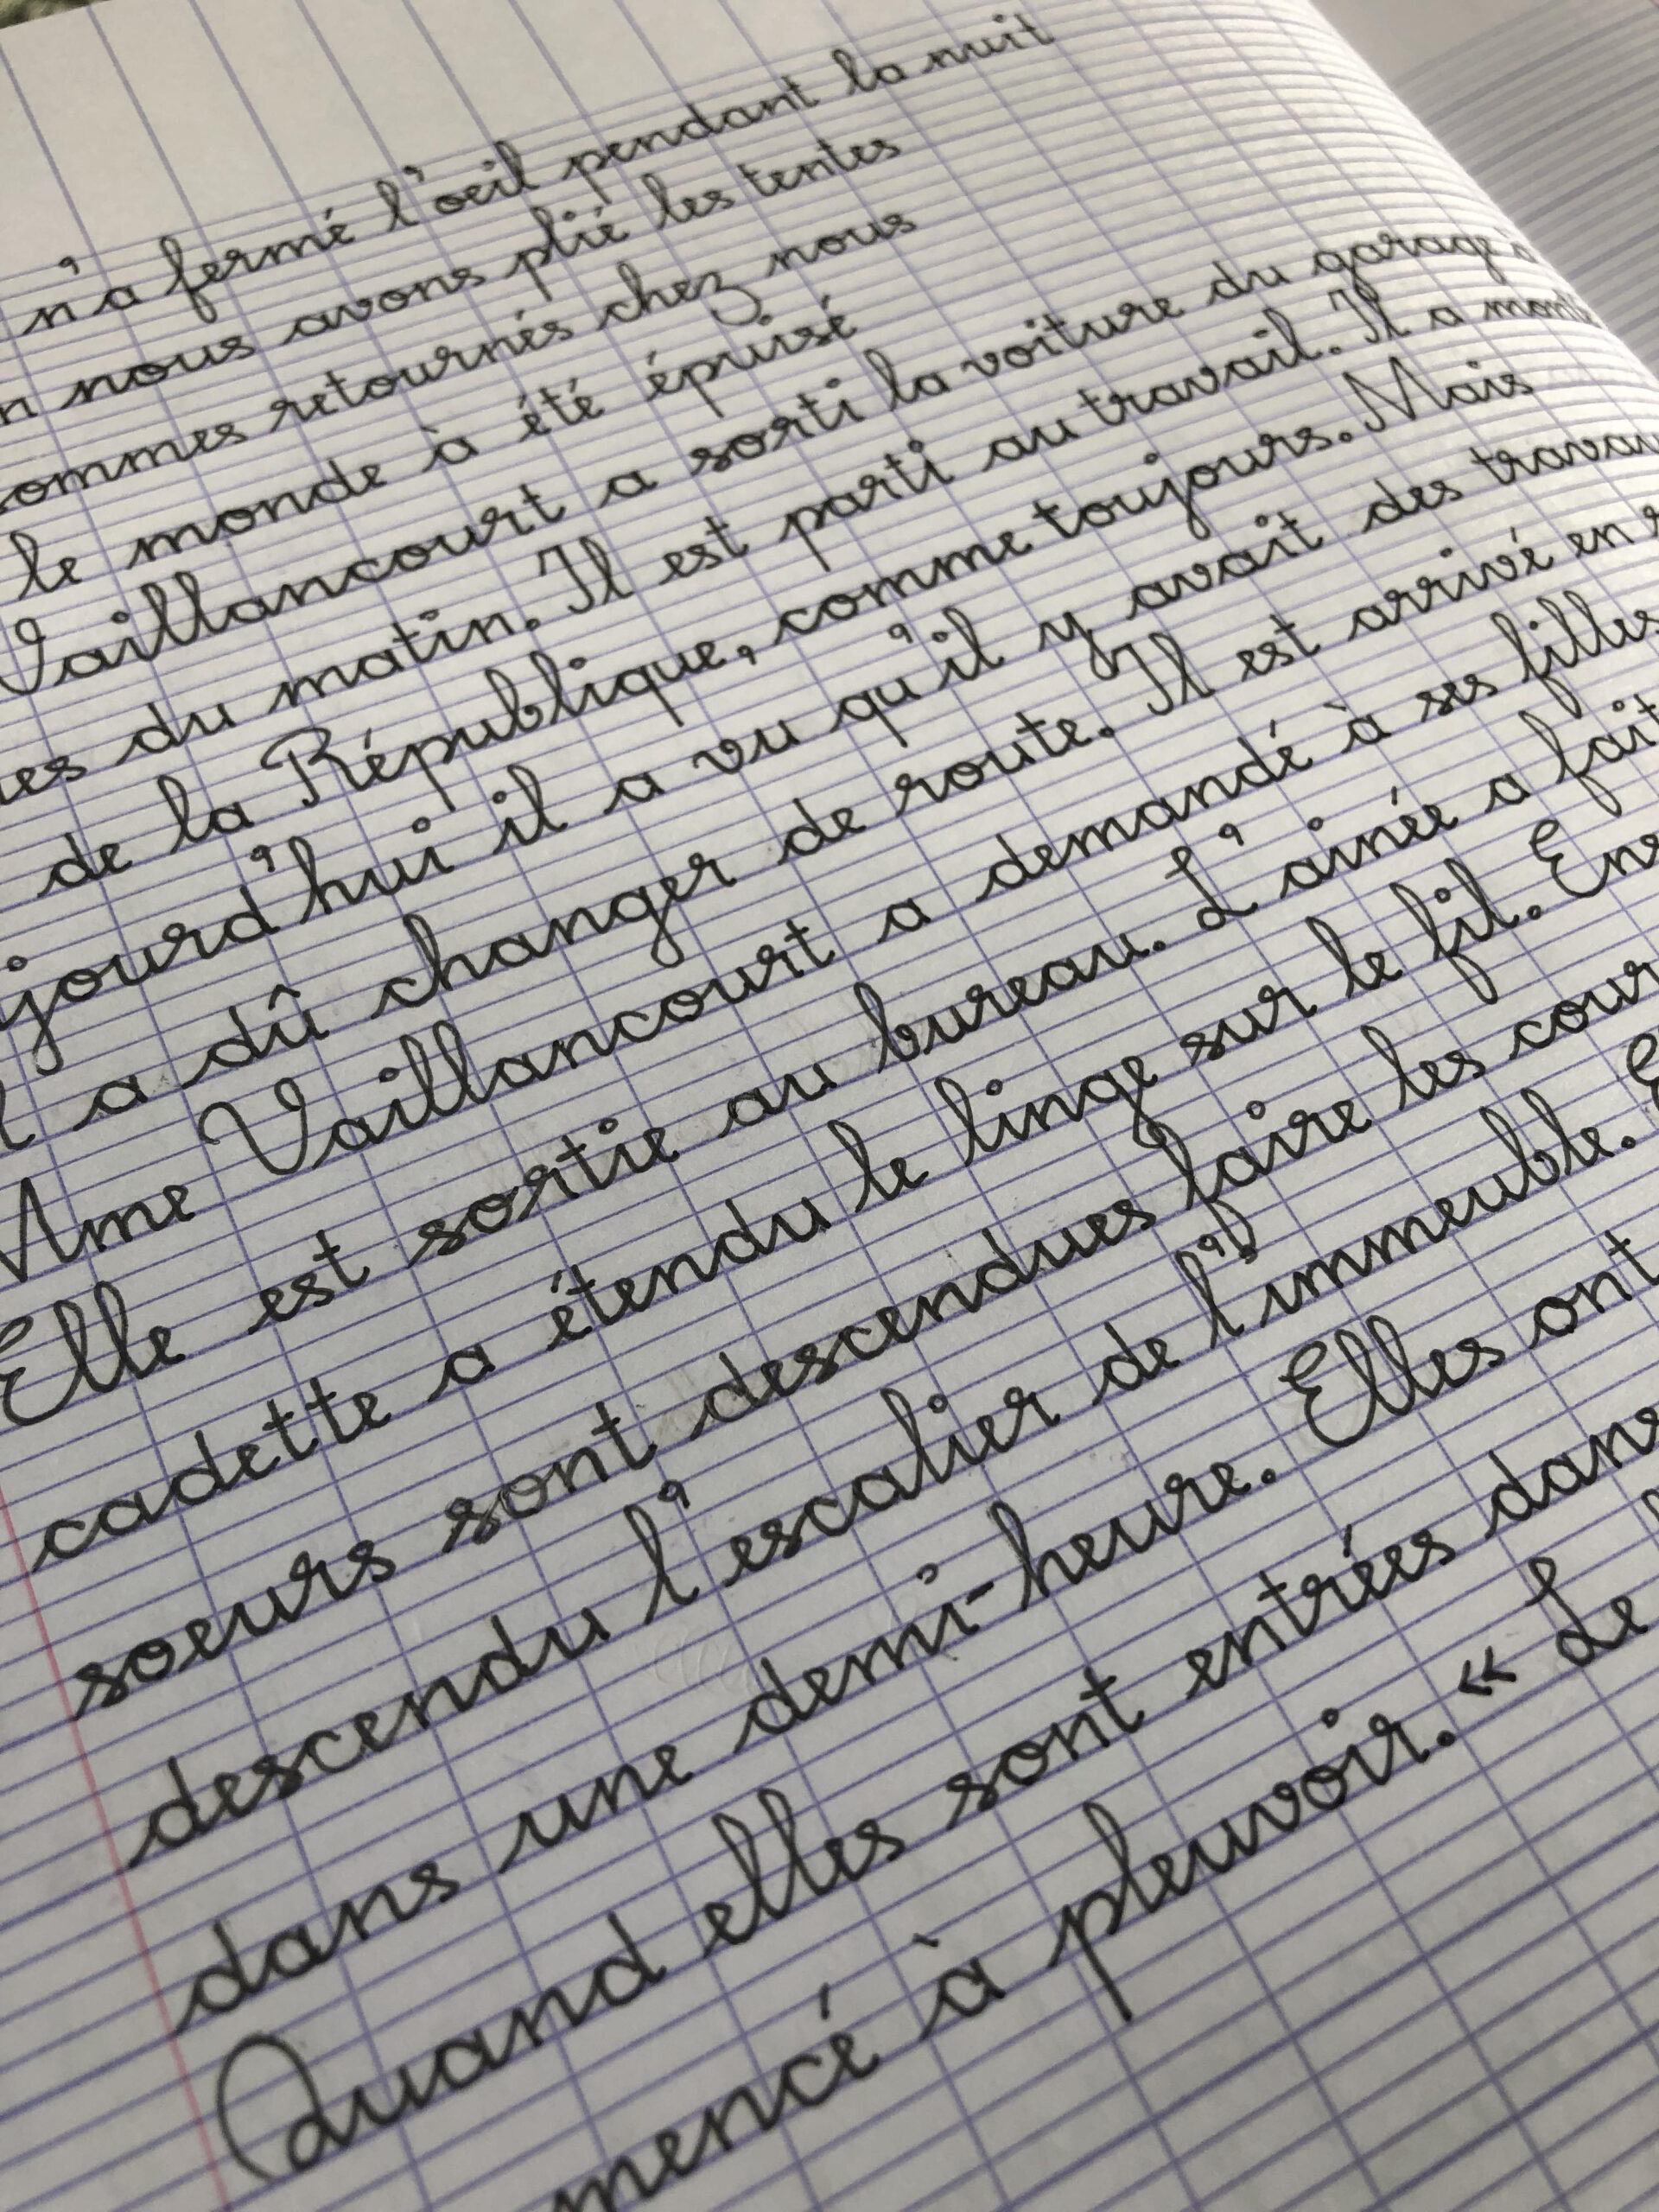 n'a fermé l'oeil pendant la nuit
nous avons plié les tentes
sommes retournés chez nous
le monde à été épuisé
Vaillancourt a sorti la voiture du garage
du matin. Il est parti au travail. Il a
de la République, comme toujours. Mais
jourd'hui il a vu qu'il y avait des
a dû changer de route. Il est arrivé en
Mme Vaillancourt a demandé à ses filles
Elle est sortie au bureau. L'ainée a fait
cadette a étendu le linge sur le fil.
soeurs sont descendues faire les
descendu l'escalier de l'immeuble.
dans une demi-heure. Elles ont
Quand elles sont entrées dans
mencé à pleuvoir. « Le